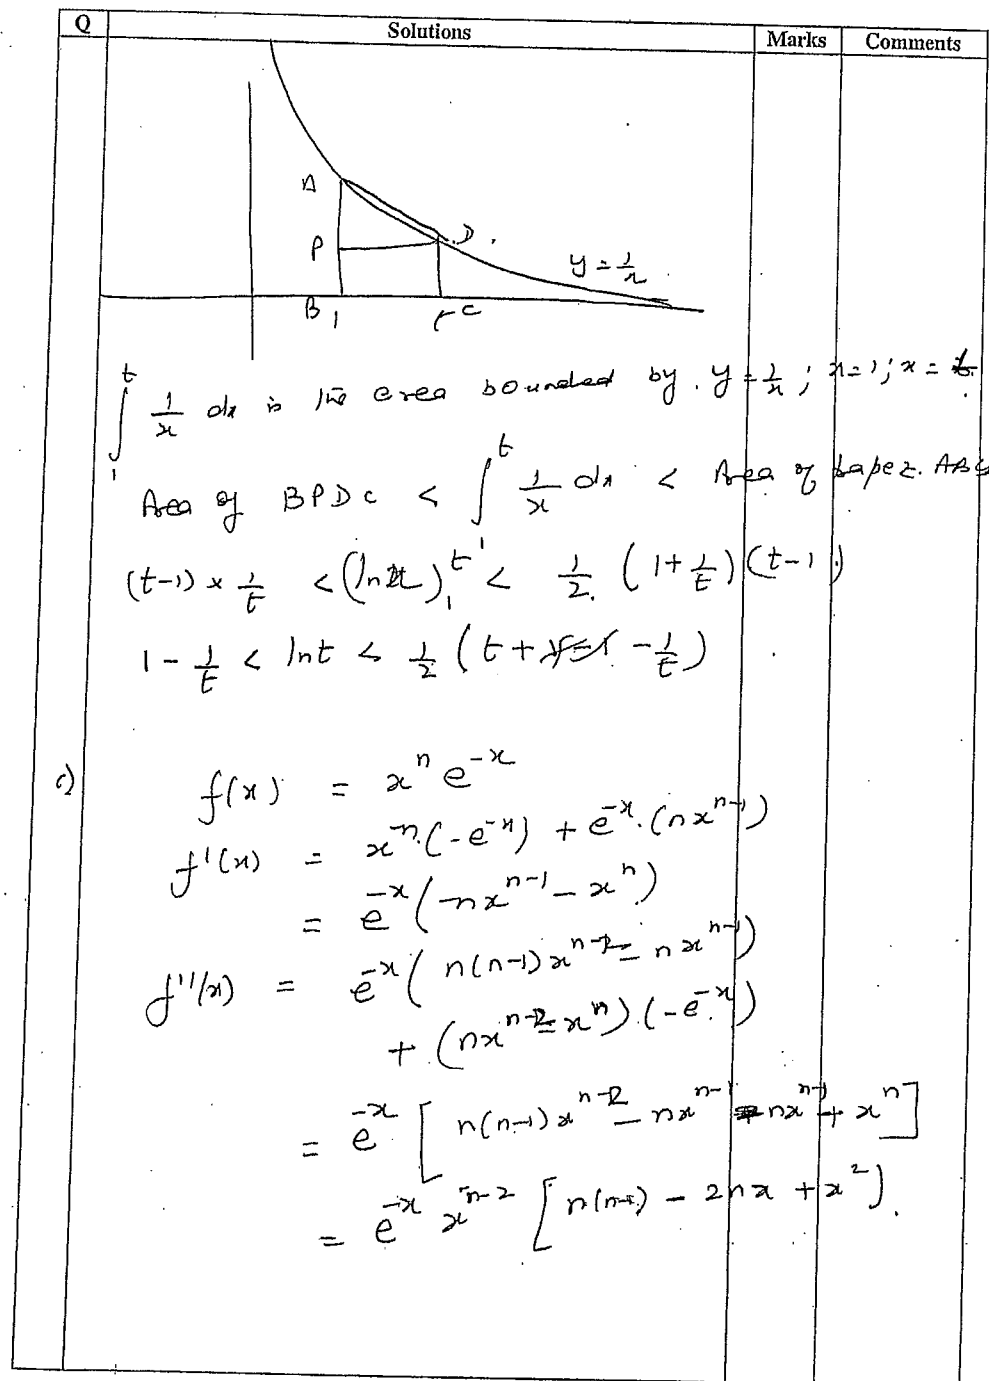 Q Solutions Marks Comments
A
P D.
y = 1/x
B 1 t C
∫₁ᵗ 1/x dx is the area bounded by y = 1/x ; x = 1 ; x = t
Area of BPDC < ∫₁ᵗ 1/x dx < Area of trapez. ABC
(t-1) × 1/t < (ln x)₁ᵗ < 1/2 (1 + 1/t)(t-1)
1 - 1/t < ln t < 1/2 (t + 1 - 1 - 1/t)
c) f(x) = xⁿ e⁻ˣ
f'(x) = xⁿ.(-e⁻ˣ) + e⁻ˣ.(nxⁿ⁻¹)
= e⁻ˣ (nxⁿ⁻¹ - xⁿ)
f''(x) = e⁻ˣ ( n(n-1)xⁿ⁻² - nxⁿ⁻¹)
+ (nxⁿ⁻¹ - xⁿ).(-e⁻ˣ)
= e⁻ˣ [ n(n-1)xⁿ⁻² - nxⁿ⁻¹ - nxⁿ⁻¹ + xⁿ ]
= e⁻ˣ xⁿ⁻² [ n(n-1) - 2nx + x² ].